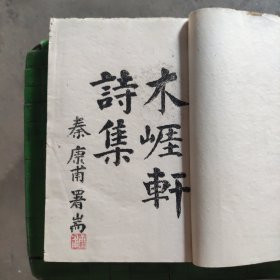 木崕軒
詩集
秦康甫署耑